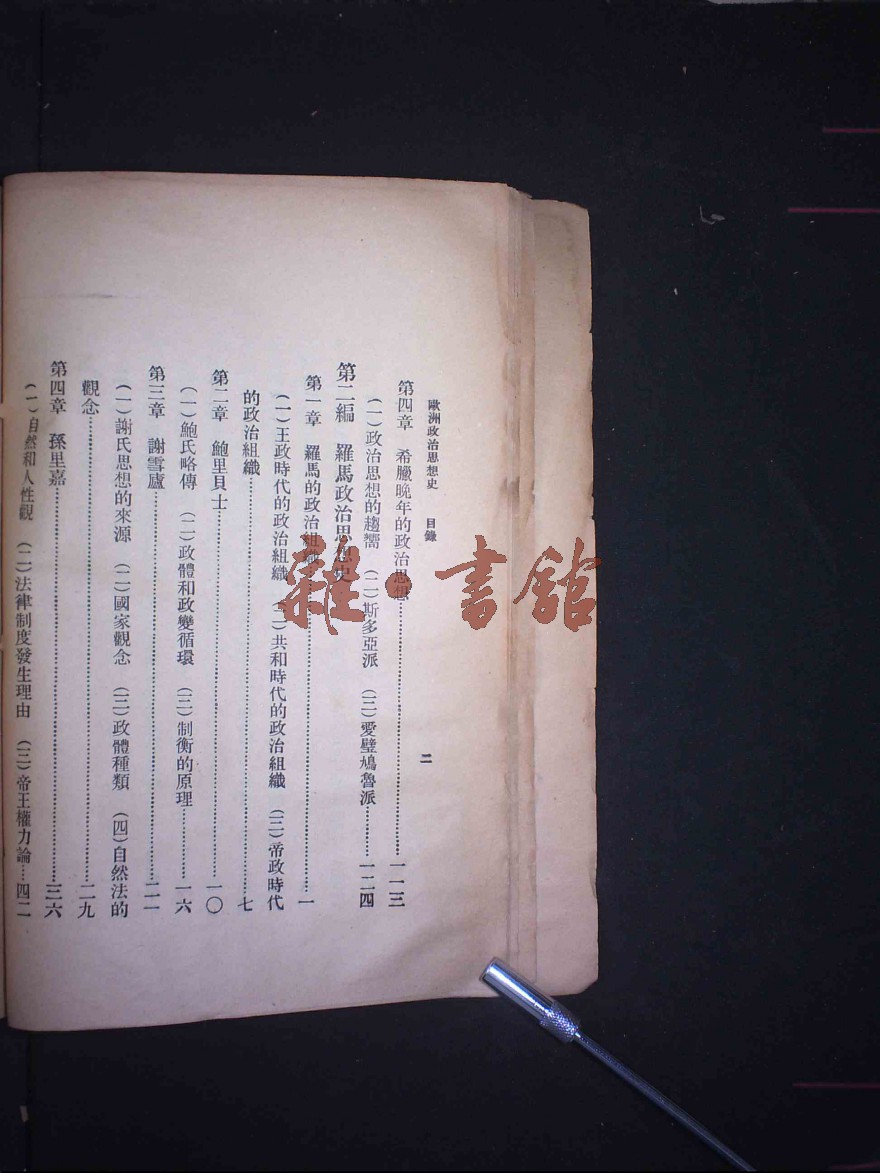 歐洲政治思想史　目錄　二
第四章　希臘晚年的政治思想……一一三
(一)政治思想的趨嚮　(二)斯多亞派　(三)愛壁鳩魯派……一二四
第二編　羅馬政治思想史
第一章　羅馬的政治組織……一
(一)王政時代的政治組織　(二)共和時代的政治組織　(三)帝政時代
的政治組織……七
第二章　鮑里貝士……一〇
(一)鮑氏略傳　(二)政體和政變循環　(三)制衡的原理……一六
第三章　謝雪廬……二一
(一)謝氏思想的來源　(二)國家觀念　(三)政體種類　(四)自然法的
觀念……二九
第四章　孫里嘉……三六
(一)自然和人性觀　(二)法律制度發生理由　(三)帝王權力論……四二
雜·書館